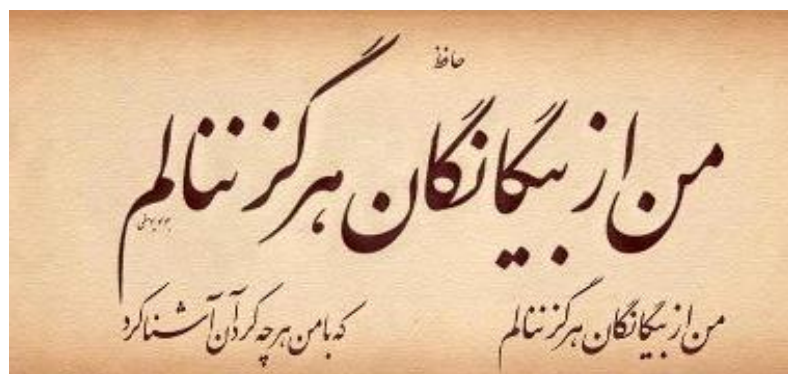 حافظ
من از بیگانگان هرگز ننالم
من از بیگانگان هرگز ننالم که با من هرچه کرد آن آشنا کرد